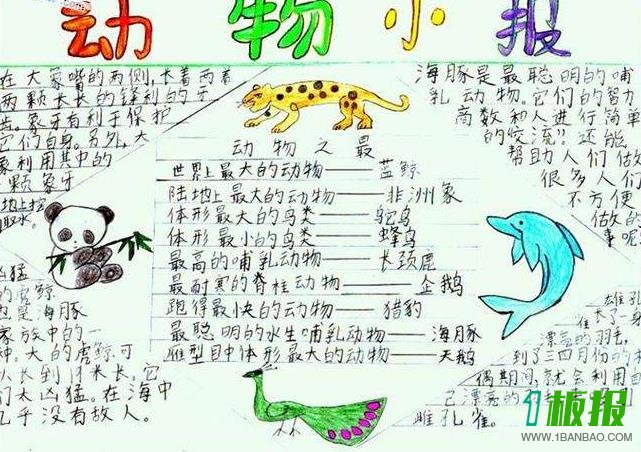 动物小报
在大象嘴的两侧,长着两着
两颗长长的锋利的牙
齿。象牙有利于保护
它们自身。另外,大
象利用其中的
一颗象牙
地上挖
取水。
海豚是最聪明的哺
乳动物。它们的智力
商数和人进行简单
的佼流!!还能
帮助人们做
很多人们
不方便
做的
事呢
动物之最
世界上最大的动物——蓝鲸
陆地上最大的动物——非洲象
体形最大的鸟类——鸵鸟
体形最小的鸟类——蜂鸟
最高的哺乳动物——长颈鹿
最耐寒的脊柱动物——企鹅
跑得最快的动物——猎豹
最聪明的水生哺乳动物——海豚
雁型目中体形最大的动物——天鹅
凶猛
的虎鲸
也是海豚
家族中的一
种。大的虎鲸可
以长到 米长。它
们太凶猛。在海中
几乎没有敌人。
雄孔
长了一身
漂亮的羽毛,
到了三四月份的
偶期间,就会利用自
己漂亮的
雌孔雀。
1板报
WWW.1BANBAO.COM